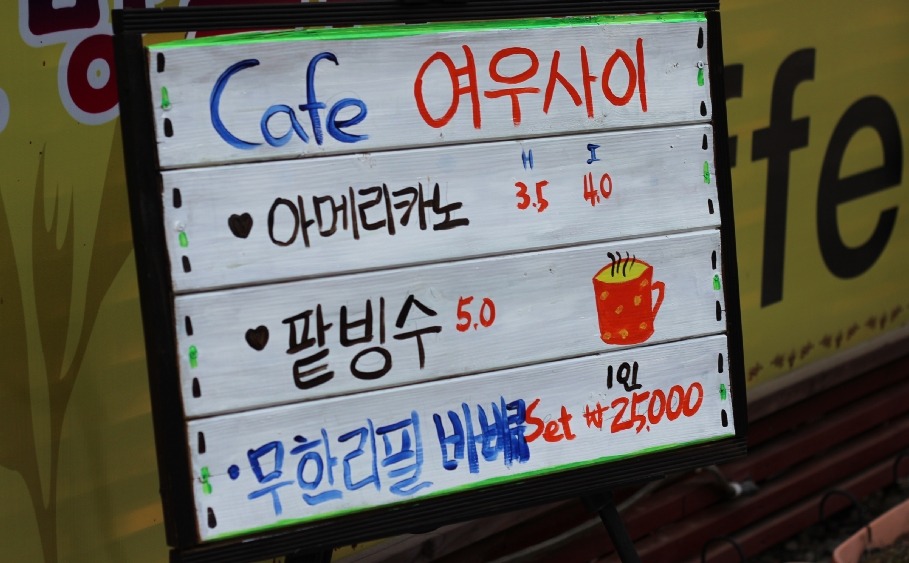 Cafe 여우사이
H I
♥ 아메리카노 3.5 4.0
♥ 팥빙수 5.0
1인
• 무한리필 바베큐 Set ₩25,000
ffe